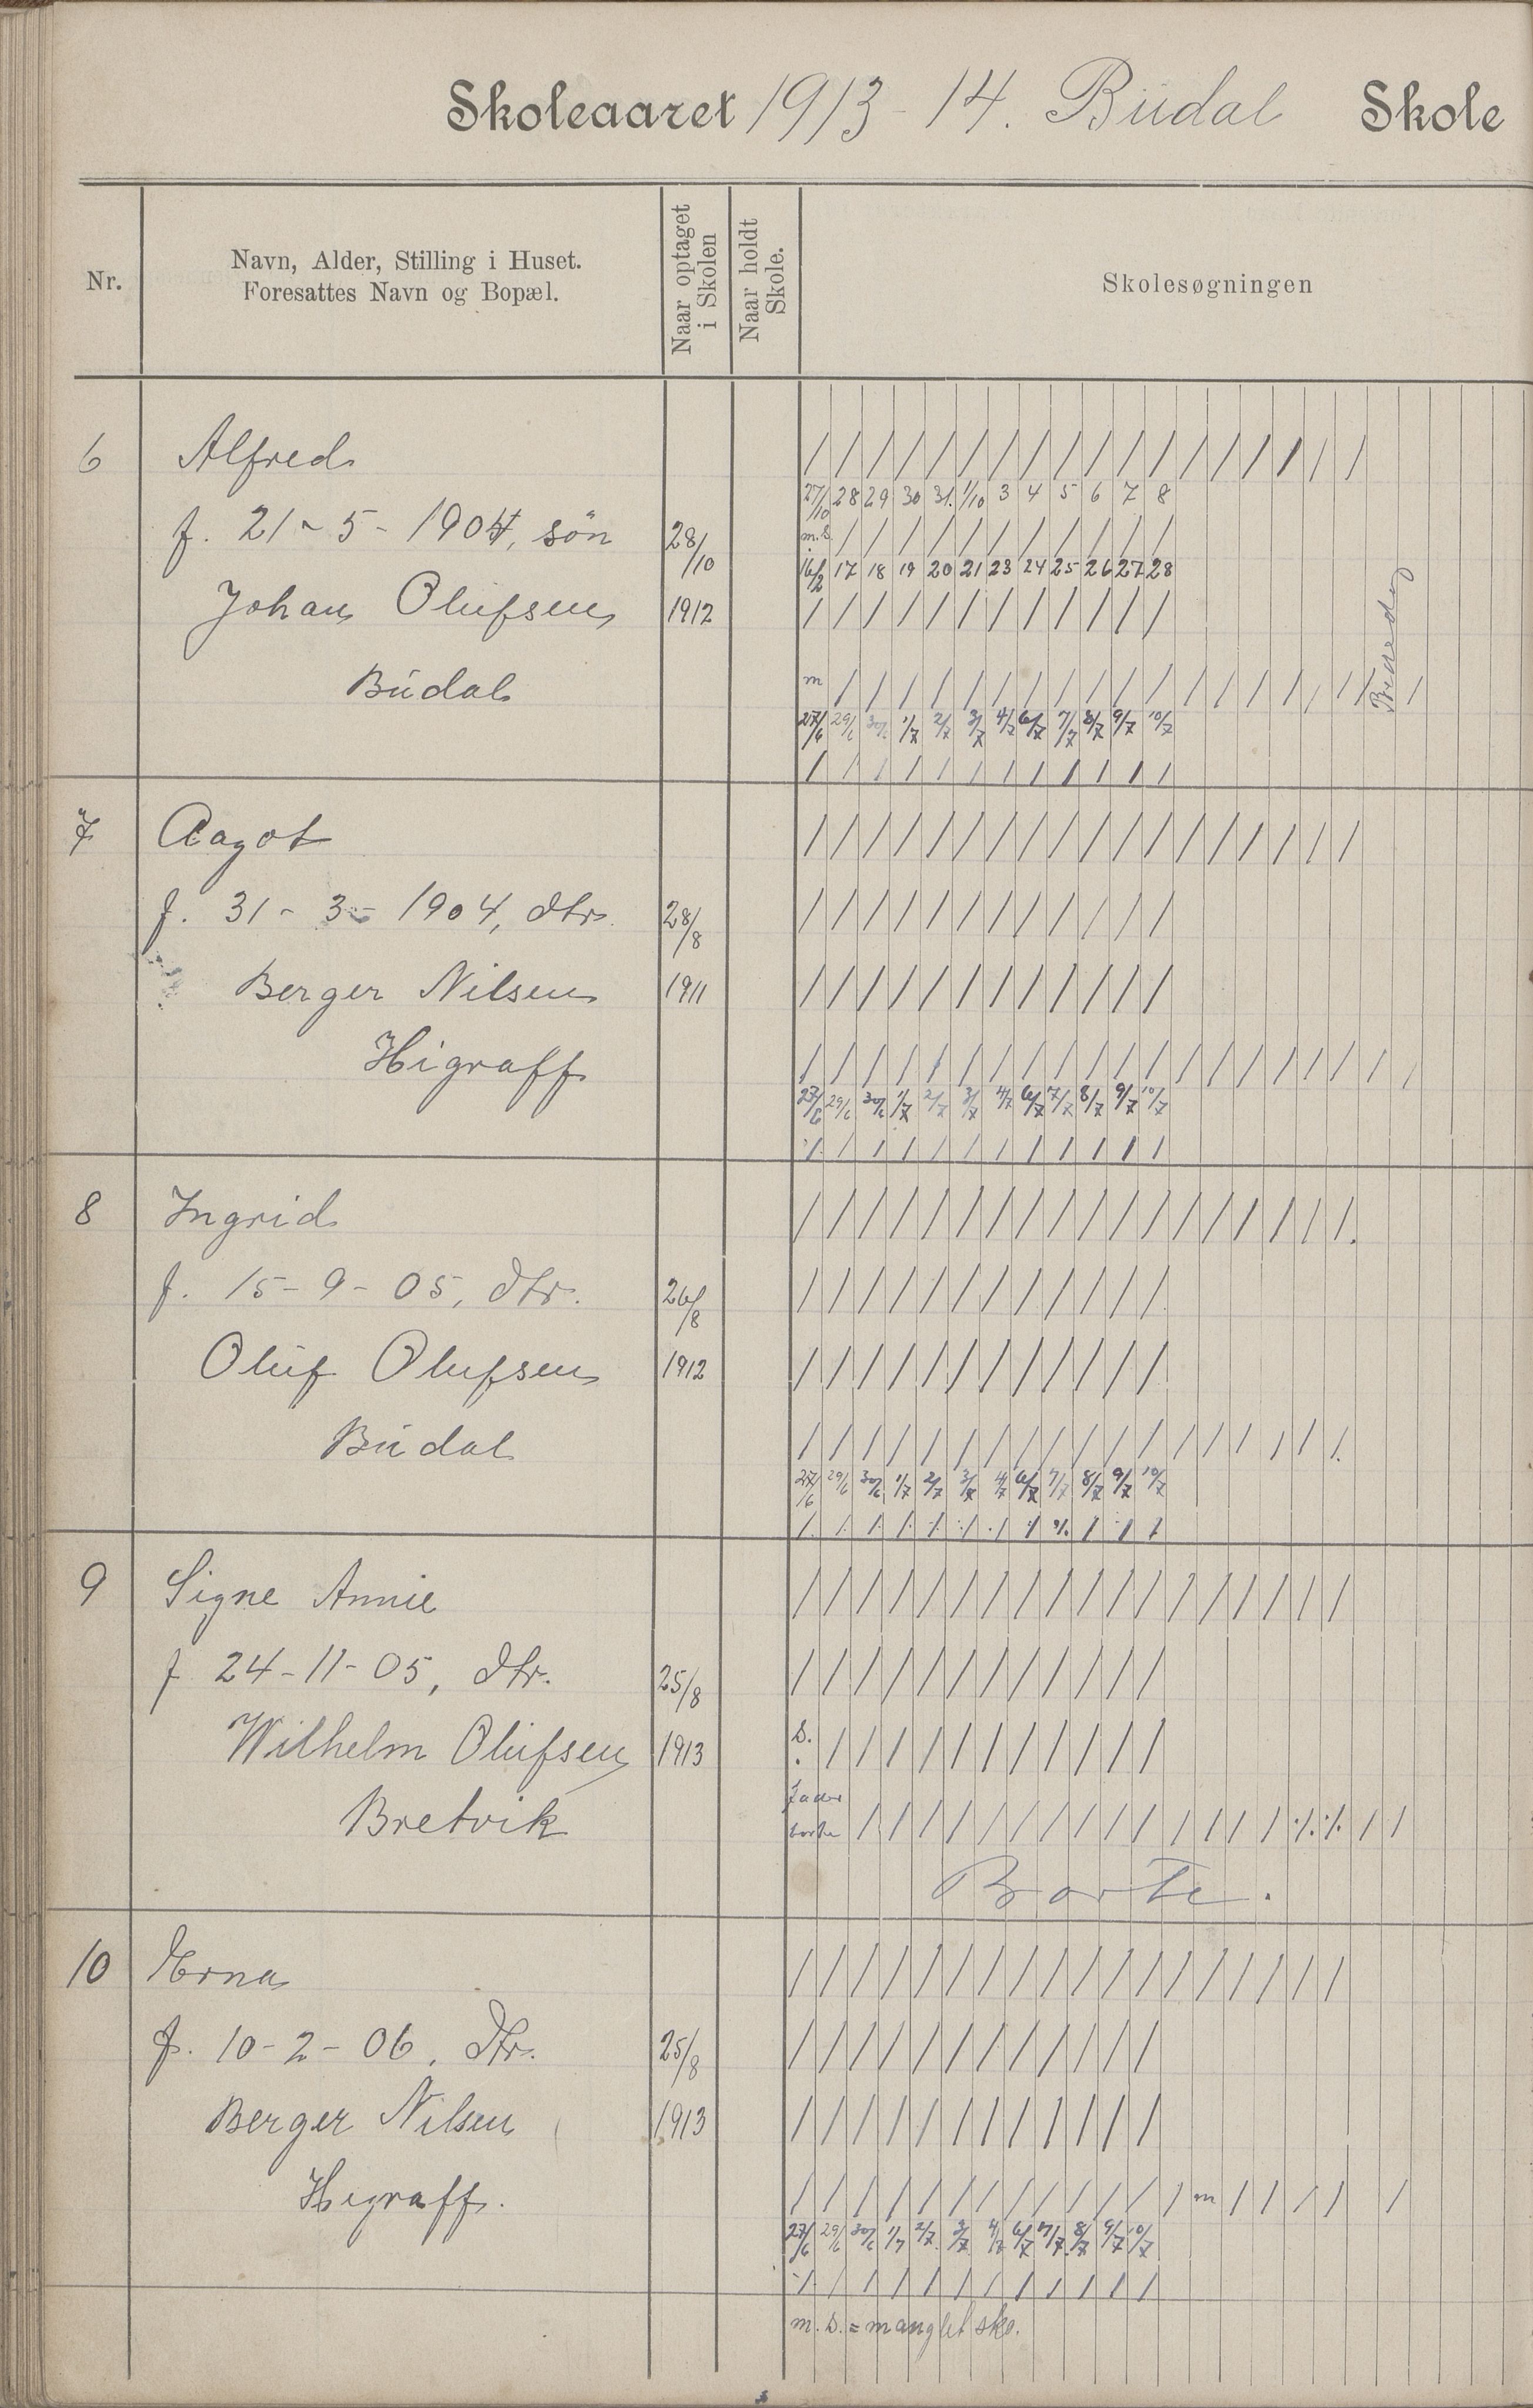 Skoleaaret 1913-14. Budal Skole
Nr.
Navn, Alder, Stilling i Huset.
Foresattes Navn og Bopæl.
Naar optaget
i Skolen
Naar holdt
Skole.
Skolesøgningen
6 Alfred
27/10 28 29 30 31. 1/10 3 4 5 6 7 8
f. 21-5-1904, søn 28/10 m.s.
16/2 17 18 19 20 21 23 24 25 26 27 28
Johan Olufsen 1912
Budal m
27/6 29/6 30/6 1/7 2/7 3/7 4/7 6/7 7/7 8/7 9/7 10/7
7 Aagot
f. 31-3-1904, dtr. 28/8
Berger Nilsen 1911
Higraff
27/6 29/6 30/6 1/7 2/7 3/7 4/7 6/7 7/7 8/7 9/7 10/7
8 Ingrid
f. 15-9-05, dtr. 26/8
Oluf Olufsen 1912
Budal
27/6 29/6 30/6 1/7 2/7 3/7 4/7 6/7 7/7 8/7 9/7 10/7
9 Signe Annie
f 24-11-05, dtr. 25/8
Wilhelm Olufsen 1913 S.
Bretvik
borte
Borte.
10 Erna
f. 10-2-06, dtr. 25/8
Berger Nilsen 1913
Higraff. m
27/6 29/6 30/6 1/7 2/7 3/7 4/7 6/7 7/7 8/7 9/7 10/7
m.s. = manglet sko.